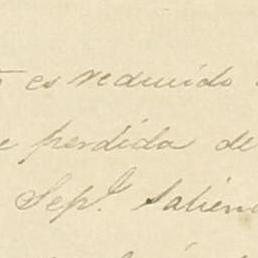 es reducido
perdida de
Sepe. Salien